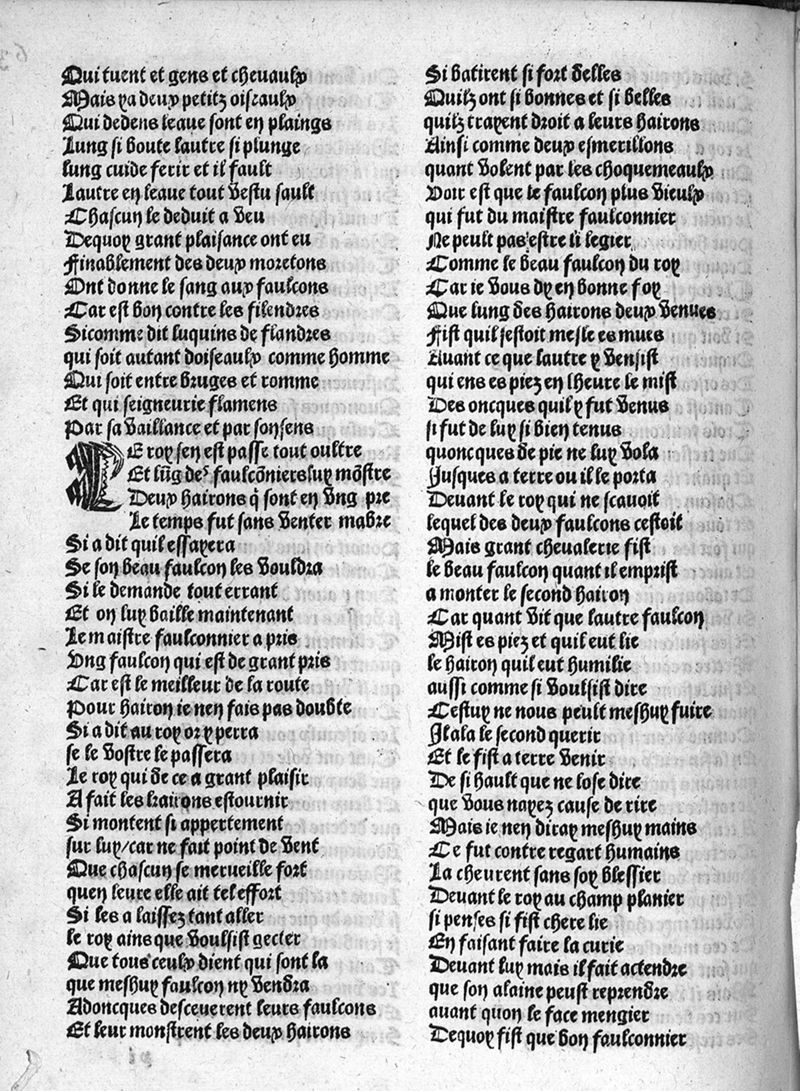 Qui tuent et gens et chevaulx
Mais ya deux petitz oiseaulx
Qui dedens leaue sont en plaings
Lung si boute lautre si plunge
lung cuide ferir et il fault
Lautre en leaue tout vestu sault
Chascun le deduit a veu
Dequoy grant plaisance ont eu
Finablement des deux moretons
Ont donne le sang aux faulcons
Car est bon contre les filendres
Sicomme dit luquins de flandres
qui soit autant doiseaulx comme homme
Qui soit entre bruges et romme
Et qui seigneurie flamens
Par sa vaillance et par son sens
LE roy sen est passe tout oultre
Et lũg des faulcõniers luy mõstre
Deux hairons q̃ sont en vng pre
Le temps fut sans venter mabre
Si a dit quil essayera
Se son beau faulcon les vouldra
Si le demande tout errant
Et on luy baille maintenant
Le maistre faulconnier a pris
Vng faulcon qui est de grant pris
Car est le meilleur de la route
Pour hairon ie nen fais pas doubte
Si a dit au roy or y perra
se le vostre le passera
Le roy qui de ce a grant plaisir
A fait les hairons estournir
Si montent si appertement
sur luy/car ne fait point de vent
Que chascun se merveille fort
quen leure elle ait tel effort
Si les a laissez tant aller
le roy ains que voulsist gecter
Que tous ceulx dient qui sont la
que meshuy faulcon ny vendra
Adoncques desceuerent leurs faulcons
Et leur monstrent les deux hairons
Si batirent si fort delles
Quilz ont si bonnes et si belles
quilz trayent droit a leurs hairons
Ainsi comme deux esmerillons
quant volent par les choquemeaulx
Voir est que le faulcon plus vieulx
qui fut du maistre faulconnier
Ne peult pas estre li legier
Comme le beau faulcon du roy
Car ie vous dy en bonne foy
Que lung des hairons deux venues
Fist quil sestoit mesle es mues
Auant ce que lautre y vensist
qui ens es piez en lheure le mist
Des oncques quil y fut venus
si fut de luy si bien tenus
quoncques de pie ne luy vola
Jusques a terre ou il le porta
Deuant le roy qui ne scauoit
lequel des deux faulcons cestoit
Mais grant chevalerie fist
le beau faulcon quant il emprist
a monter le second hairon
Car quant vit que lautre faulcon
Mist es piez et quil eut lie
le hairon quil eut humilie
aussi comme si voulsist dire
Cestuy ne nous peult meshuy fuire
Il ala le second querir
Et le fist a terre venir
De si hault que ne lose dire
que vous nayez cause de rire
Mais ie nen diray meshuy mains
Ce fut contre regart humains
La cheurent sans soy blessier
Deuant le roy au champ planier
si penses si fist chere lie
En faisant faire la curie
Deuant luy mais il fait actendre
que son alaine peust reprendre
auant quon le face mengier
Dequoy fist que bon faulconnier